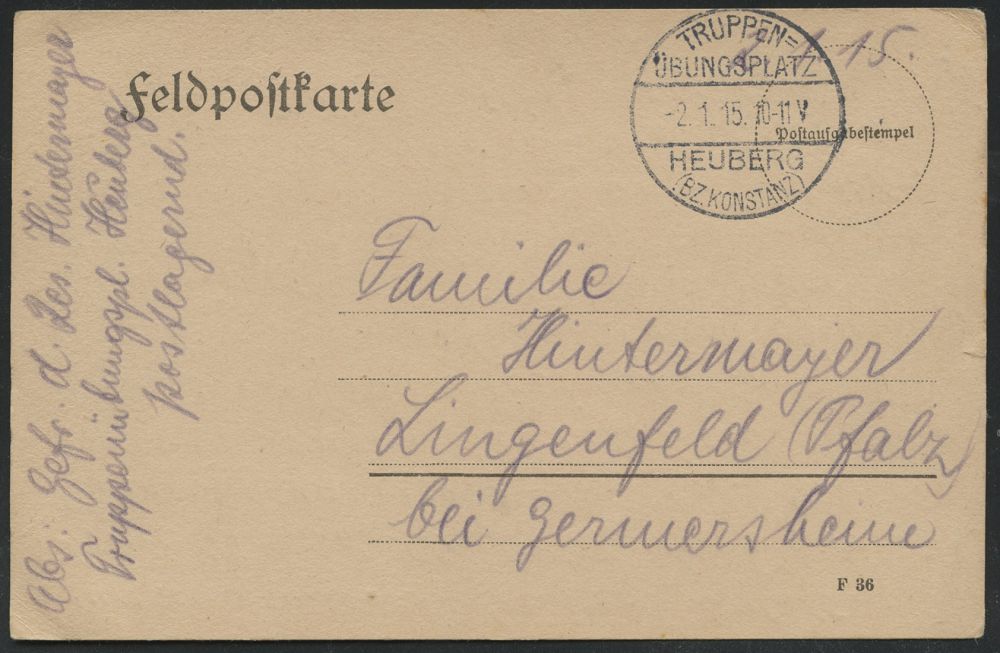 Feldpostkarte
2.1.15.
TRUPPEN=
ÜBUNGSPLATZ
-2.1.15.10-11V
HEUBERG
(BZ.KONSTANZ)
Postausgabestempel
Familie
Hintermayer
Lingenfeld (Pfalz)
bei Germersheim
F 36
Abs: Gefr. d. Res. Hintermayer
Truppenübungspl. Heuberg
postlagernd.